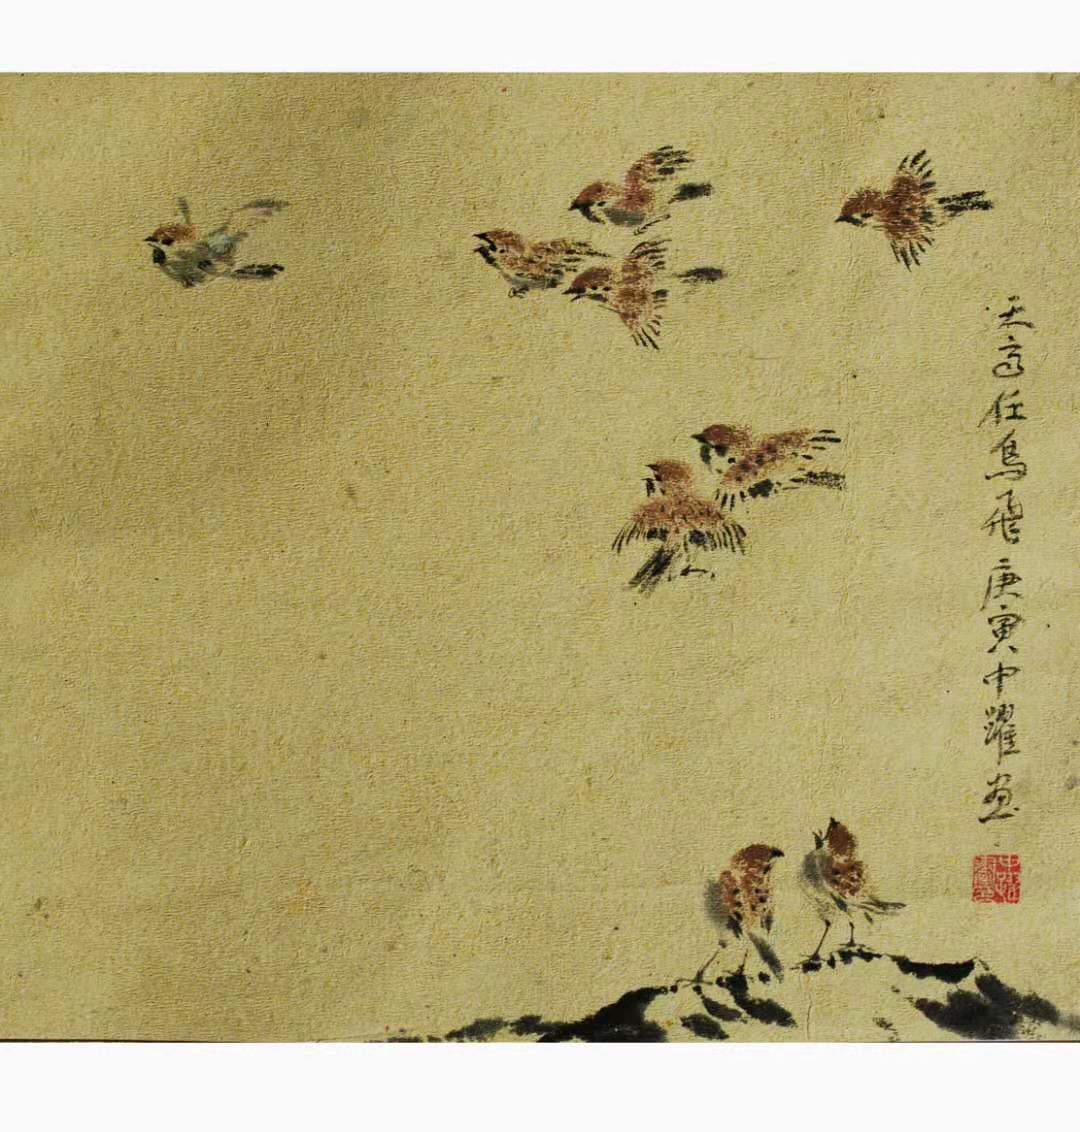 天高任鸟飞庚寅中躍画